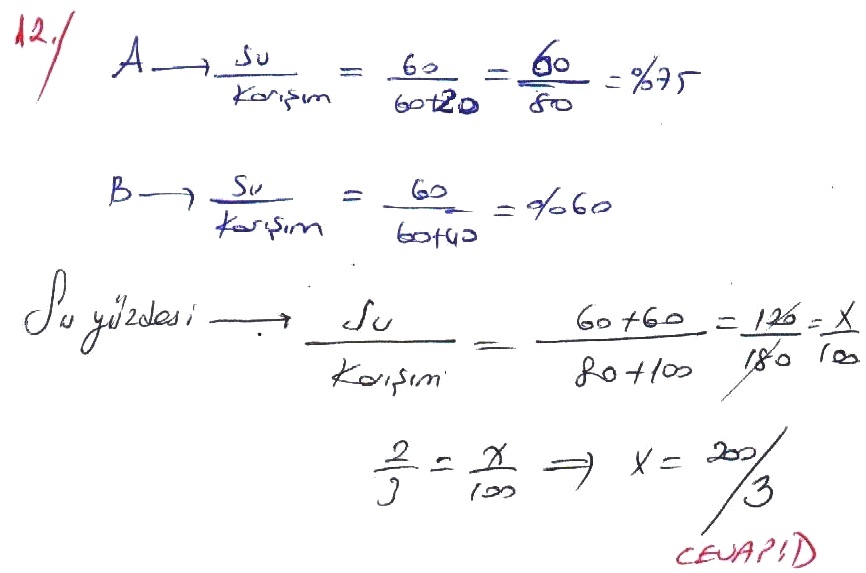 12./
A → Su / Karışım = 60 / 60+20 = 60 / 80 = %75
B → Su / Karışım = 60 / 60+40 = %60
Su yüzdesi → Su / Karışım = 60+60 / 80+100 = 120 / 180 = x / 100
2 / 3 = x / 100 ⇒ x = 200 / 3
CEVAP D